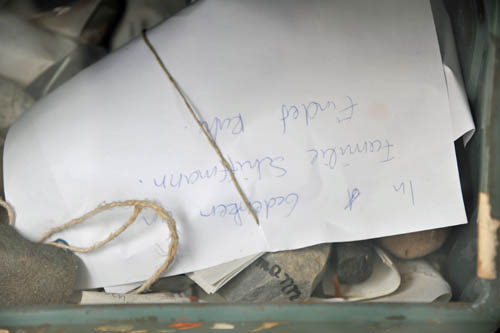 In Gedenken
Familie Schiffmann.
Findet Ruh.